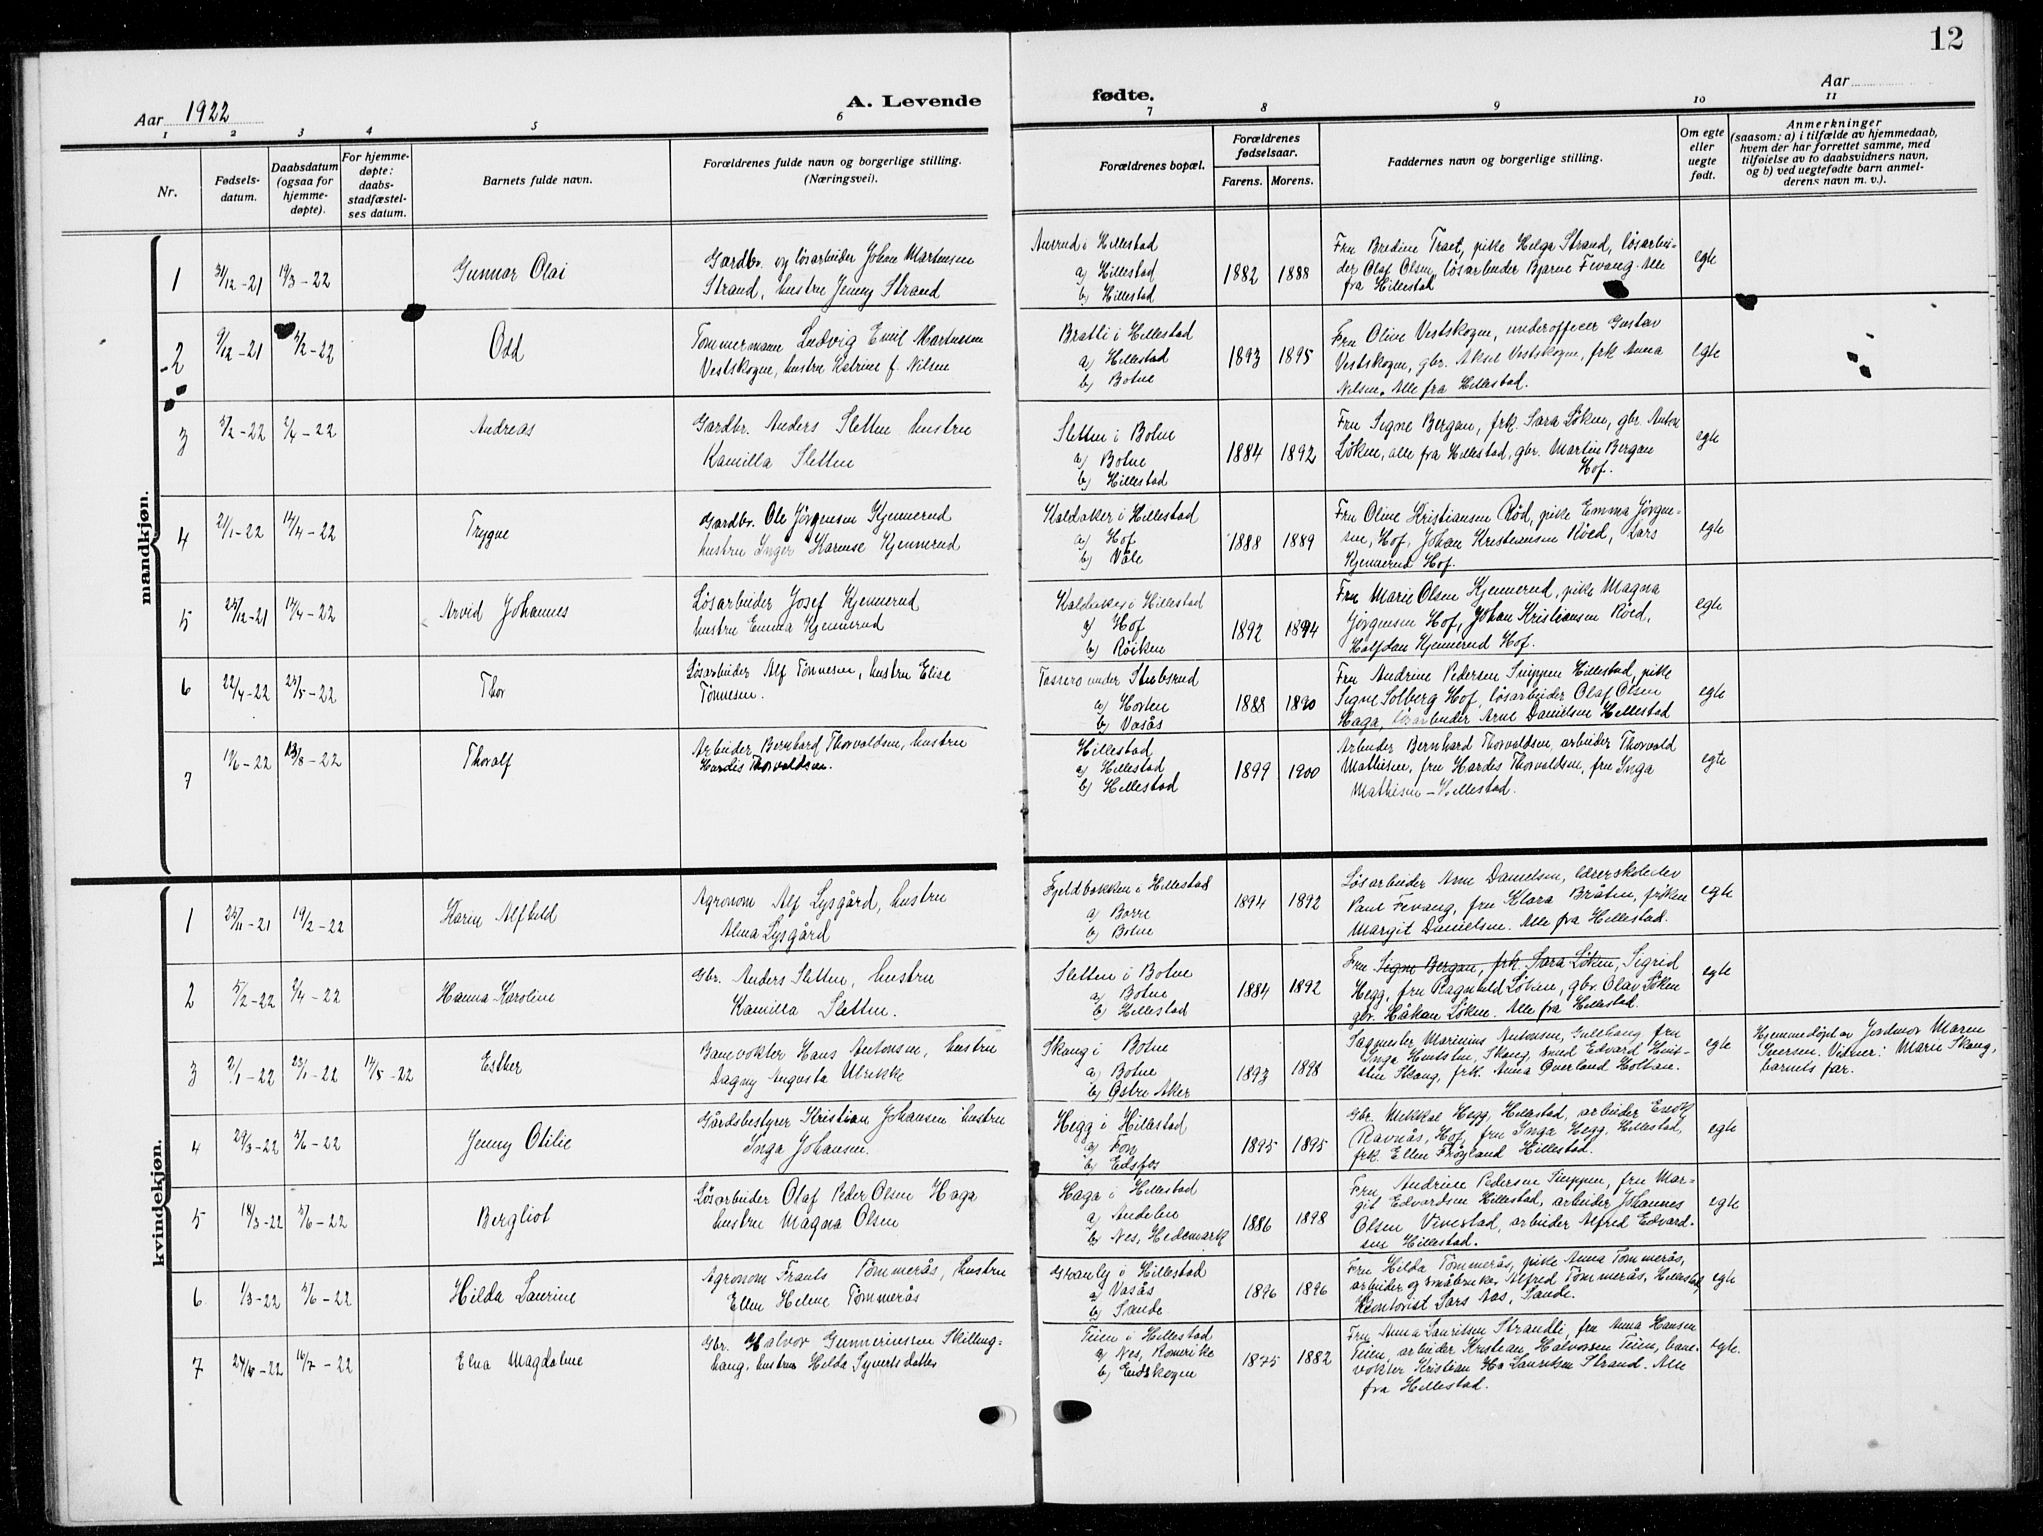 12
Aar 1922
A. Levende fødte.
Aar
1 2 3 4 5 6 7 8 9 10 11
Nr.
Fødselsdatum.
Daabsdatum (ogsaa for hjemmedøpte).
For hjemmedøpte: daabsstadfæstelses datum.
Barnets fulde navn.
Forældrenes fulde navn og borgerlige stilling. (Næringsvei).
Forældrenes bopæl.
Forældrenes fødselsaar.
Farens. Morens.
Faddernes navn og borgerlige stilling.
Om egte eller uegte født.
Anmerkninger (saasom: a) i tilfælde av hjemmedaab, hvem der har forrettet samme, med tilføielse av to daabsvidners navn, og b) ved uegtefødte barn anmelderens navn m. v.).
mandkjøn.
1 31/12-21 19/3-22 Gunnar Olai
Gardbr. og løsarbeider Johan Martinsen
Strand, hustru Jenny Strand
i Hillestad
a) Hillestad
b) Hillestad
1882 1888
Fru Bredine Traet, pike Helga Strand, løsarbei-
der Olaf Olsen, løsarbeider Bjarne Fevang. Alle
fra Hillestad
egte
2 9/12-21 5/2-22 Odd
Tømmermann Ludvig Emil Martinsen
Vestskogen, hustru Katrine f. Nilsen
Bratli i Hillestad
a) Hillestad
b) Botne
1893 1895
Fru Olive Vestskogen, underofficer Gustav
Vestskogen, gbr. Aksel Vestskogen, frk Anna
Nilsen. Alle fra Hillestad.
egte
3 5/2-22 2/4-22 Andreas
Gardbr. Anders Sletten hustru
Kamilla Sletten
Sletten i Botne
a) Botne
b) Hillestad
1884 1892
Fru Signe Bergan, frk. Sara Løken, gbr. Anton
Løken, alle fra Hillestad, gbr. Martin Bergan
Hof.
egte
4 21/1-22 17/4-22 Trygve
Gardbr. Ole Jørgensen Kjennerud
hustru Inger Karense Kjennerud
Kaldaker i Hillestad
a) Hof
b) Våle
1888 1889
Fru Oline Kristiansen Rød, pike Emma Jørgen-
sen, Hof, Johan Kristiansen Røed, Lars
Kjennerud Hof.
egte
5 25/12-21 17/4-22 Arvid Johannes
Løsarbeider Josef Kjennerud
hustru Emma Kjennerud
Kaldaker i Hillestad
a) Hof
b) Røiken
1892 1894
Fru Marie Olsen Kjennerud, pike Magna
Jørgensen Hof, Johan Kristiansen Røed,
Halfdan Kjennerud Hof.
egte
6 22/4-22 25/5-22 Thor
Løsarbeider Alf Tønnesen, hustru Elise
Tønnesen.
under Stubsrud
a) Horten
b) Vasås
1888 1890
Fru Andrine Pedersen Snippen Hillestad, pike
Signe Solberg Hof, løsarbeider Olaf Olsen
Haga, løsarbeider Arne Danielsen Hillestad
egte
7 19/6-22 13/8-22 Thoralf
Arbeider Bernhard Thorvaldsen, hustru
Hardis Thorvaldsen.
Hillestad
a) Hillestad
b) Hillestad
1899 1900
Arbeider Bernhard Thorvaldsen, arbeider Thorvald
Mathisen, fru Hardis Thorvaldsen, fru Inga
Mathisen - Hillestad.
egte
kvindekjøn.
1 25/11-21 19/2-22 Karin Alfhild
Agronom Alf Lysgård, hustru
Alma Lysgård
Fjeldbakken i Hillestad
a) Borre
b) Botne
1894 1892
Løsarbeider Arne Danielsen, lærerskoleelev
Paul Fevang, fru Klara Bråten, frøken
Margit Danielsen. Alle fra Hillestad.
egte
2 5/2-22 2/4-22 Hanna Karoline
Gbr. Anders Sletten, hustru
Kamilla Sletten.
Sletten i Botne
a) Botne
b) Hillestad
1884 1892
Fru Signe Bergan, frk. Sara Løken, Sigrid
Hegg, fru Ragnhild Løken, gbr. Olav Løken
gbr. Håkon Løken. Alle fra Hillestad.
egte
3 2/1-22 23/1-22 14/5-22 Esther
Banevokter Hans Antonsen, hustru
Dagny Augusta Ulrikke
Skaug i Botne
a) Botne
b) Østre Aker
1893 1898
Sagmester Marinius Antonsen, Gullhaug, fru
Inga Knutsen, Skaug, smed Edvard Knut-
sen Skaug, frk. Anna Overland Holtan.
egte
Hjemmedøpt av Jordmor Maren
Iversen. Vitner: Marie Skaug,
barnets far.
4 29/3-22 5/6-22 Jenny Otilie
Gårdsbestyrer Kristian Johansen hustru
Inga Johansen.
Hegg i Hillestad
a) Fon
b) Eidsfos
1895 1895
Gbr. Mikkal Hegg, Hillestad, arbeider Enok
Ravnås, Hof, fru Inga Hegg, Hillestad,
frk. Ellen Frøyland Hillestad.
egte
5 18/3-22 5/6-22 Bergliot
Løsarbeider Olaf Peder Olsen Haga
hustru Magna Olsen
Haga i Hillestad
a) Andebu
b) Nes, Hedemark
1886 1898
Fru Andrine Pedersen Snippen, fru Mar-
git Edvardsen Hillestad, arbeider Johannes
Olsen Vivestad, arbeider Alfred Edvard-
sen Hillestad.
egte
6 1/3-22 5/6-22 Hilda Laurine
Agronom Frants Tømmerås, hustru
Ellen Helene Tømmerås
Granly i Hillestad
a) Vasås
b) Sande
1896 1896
Fru Hilda Tømmerås, pike Anna Tømmerås,
arbeider og småbruker Alfred Tømmerås, Hillestad,
Kontorist Lars Aas, Sande.
egte
7 24/6-22 16/7-22 Elna Magdalene
Gbr. Halvor Gunneriussen Skilling-
haug, hustru Hilda Syvertsdatter
Teien i Hillestad
a) Nes, Romerike
b) Eidskogen
1875 1882
Fru Anna Lauritsen Strandli, fru Anna Hansen
Teien, arbeider Kristian Halvorsen Teien, bane-
vokter Kristian Lauritsen Strand. Alle
fra Hillestad.
egte.